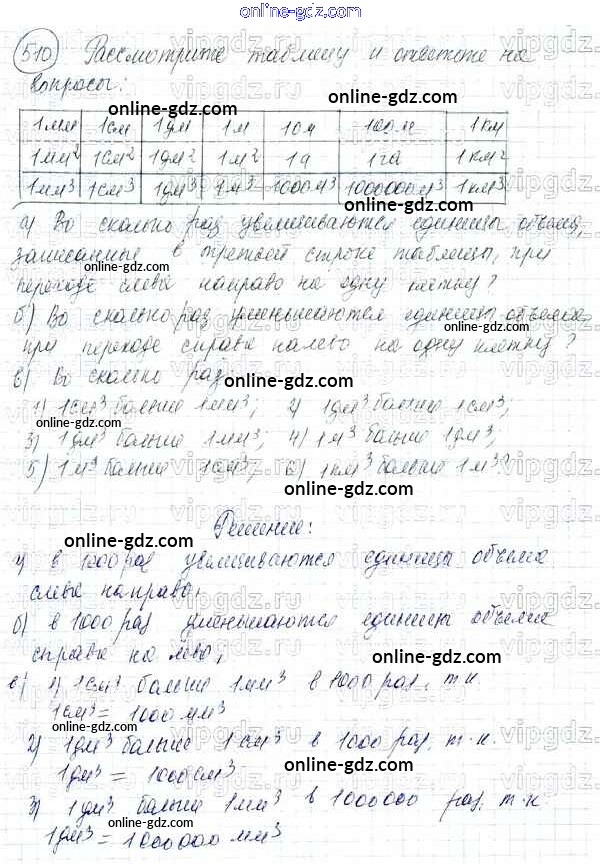 online-gdz.com
510 Рассмотрите таблицу и ответьте на
вопросы:
1мм 1см 1дм 1м 10м 100м 1км
1мм² 1см² 1дм² 1м² 1а 1га 1км²
1мм³ 1см³ 1дм³ 1м³ 1000м³ 1000000м³ 1км³
а) Во сколько раз увеличиваются единицы объема,
записанные в третьей строке таблицы, при
переходе слева направо на одну клетку?
б) Во сколько раз уменьшаются единицы объема
при переходе справа налево на одну клетку?
в) Во сколько раз
1) 1см³ больше 1мм³; 2) 1дм³ больше 1см³;
3) 1дм³ больше 1мм³; 4) 1м³ больше 1дм³;
5) 1м³ больше 1см³; 6) 1км³ больше 1м³?
Решение:
а) в 1000 раз увеличиваются единицы объема
слева направо;
б) в 1000 раз уменьшаются единицы объема
справа на лево;
в) 1) 1см³ больше 1мм³ в 1000 раз, т.к.
1см³ = 1000мм³
2) 1дм³ больше 1см³ в 1000 раз, т.к.
1дм³ = 1000см³
3) 1дм³ больше 1мм³ в 1000000 раз, т.к.
1дм³ = 1000000 мм³
online-gdz.com